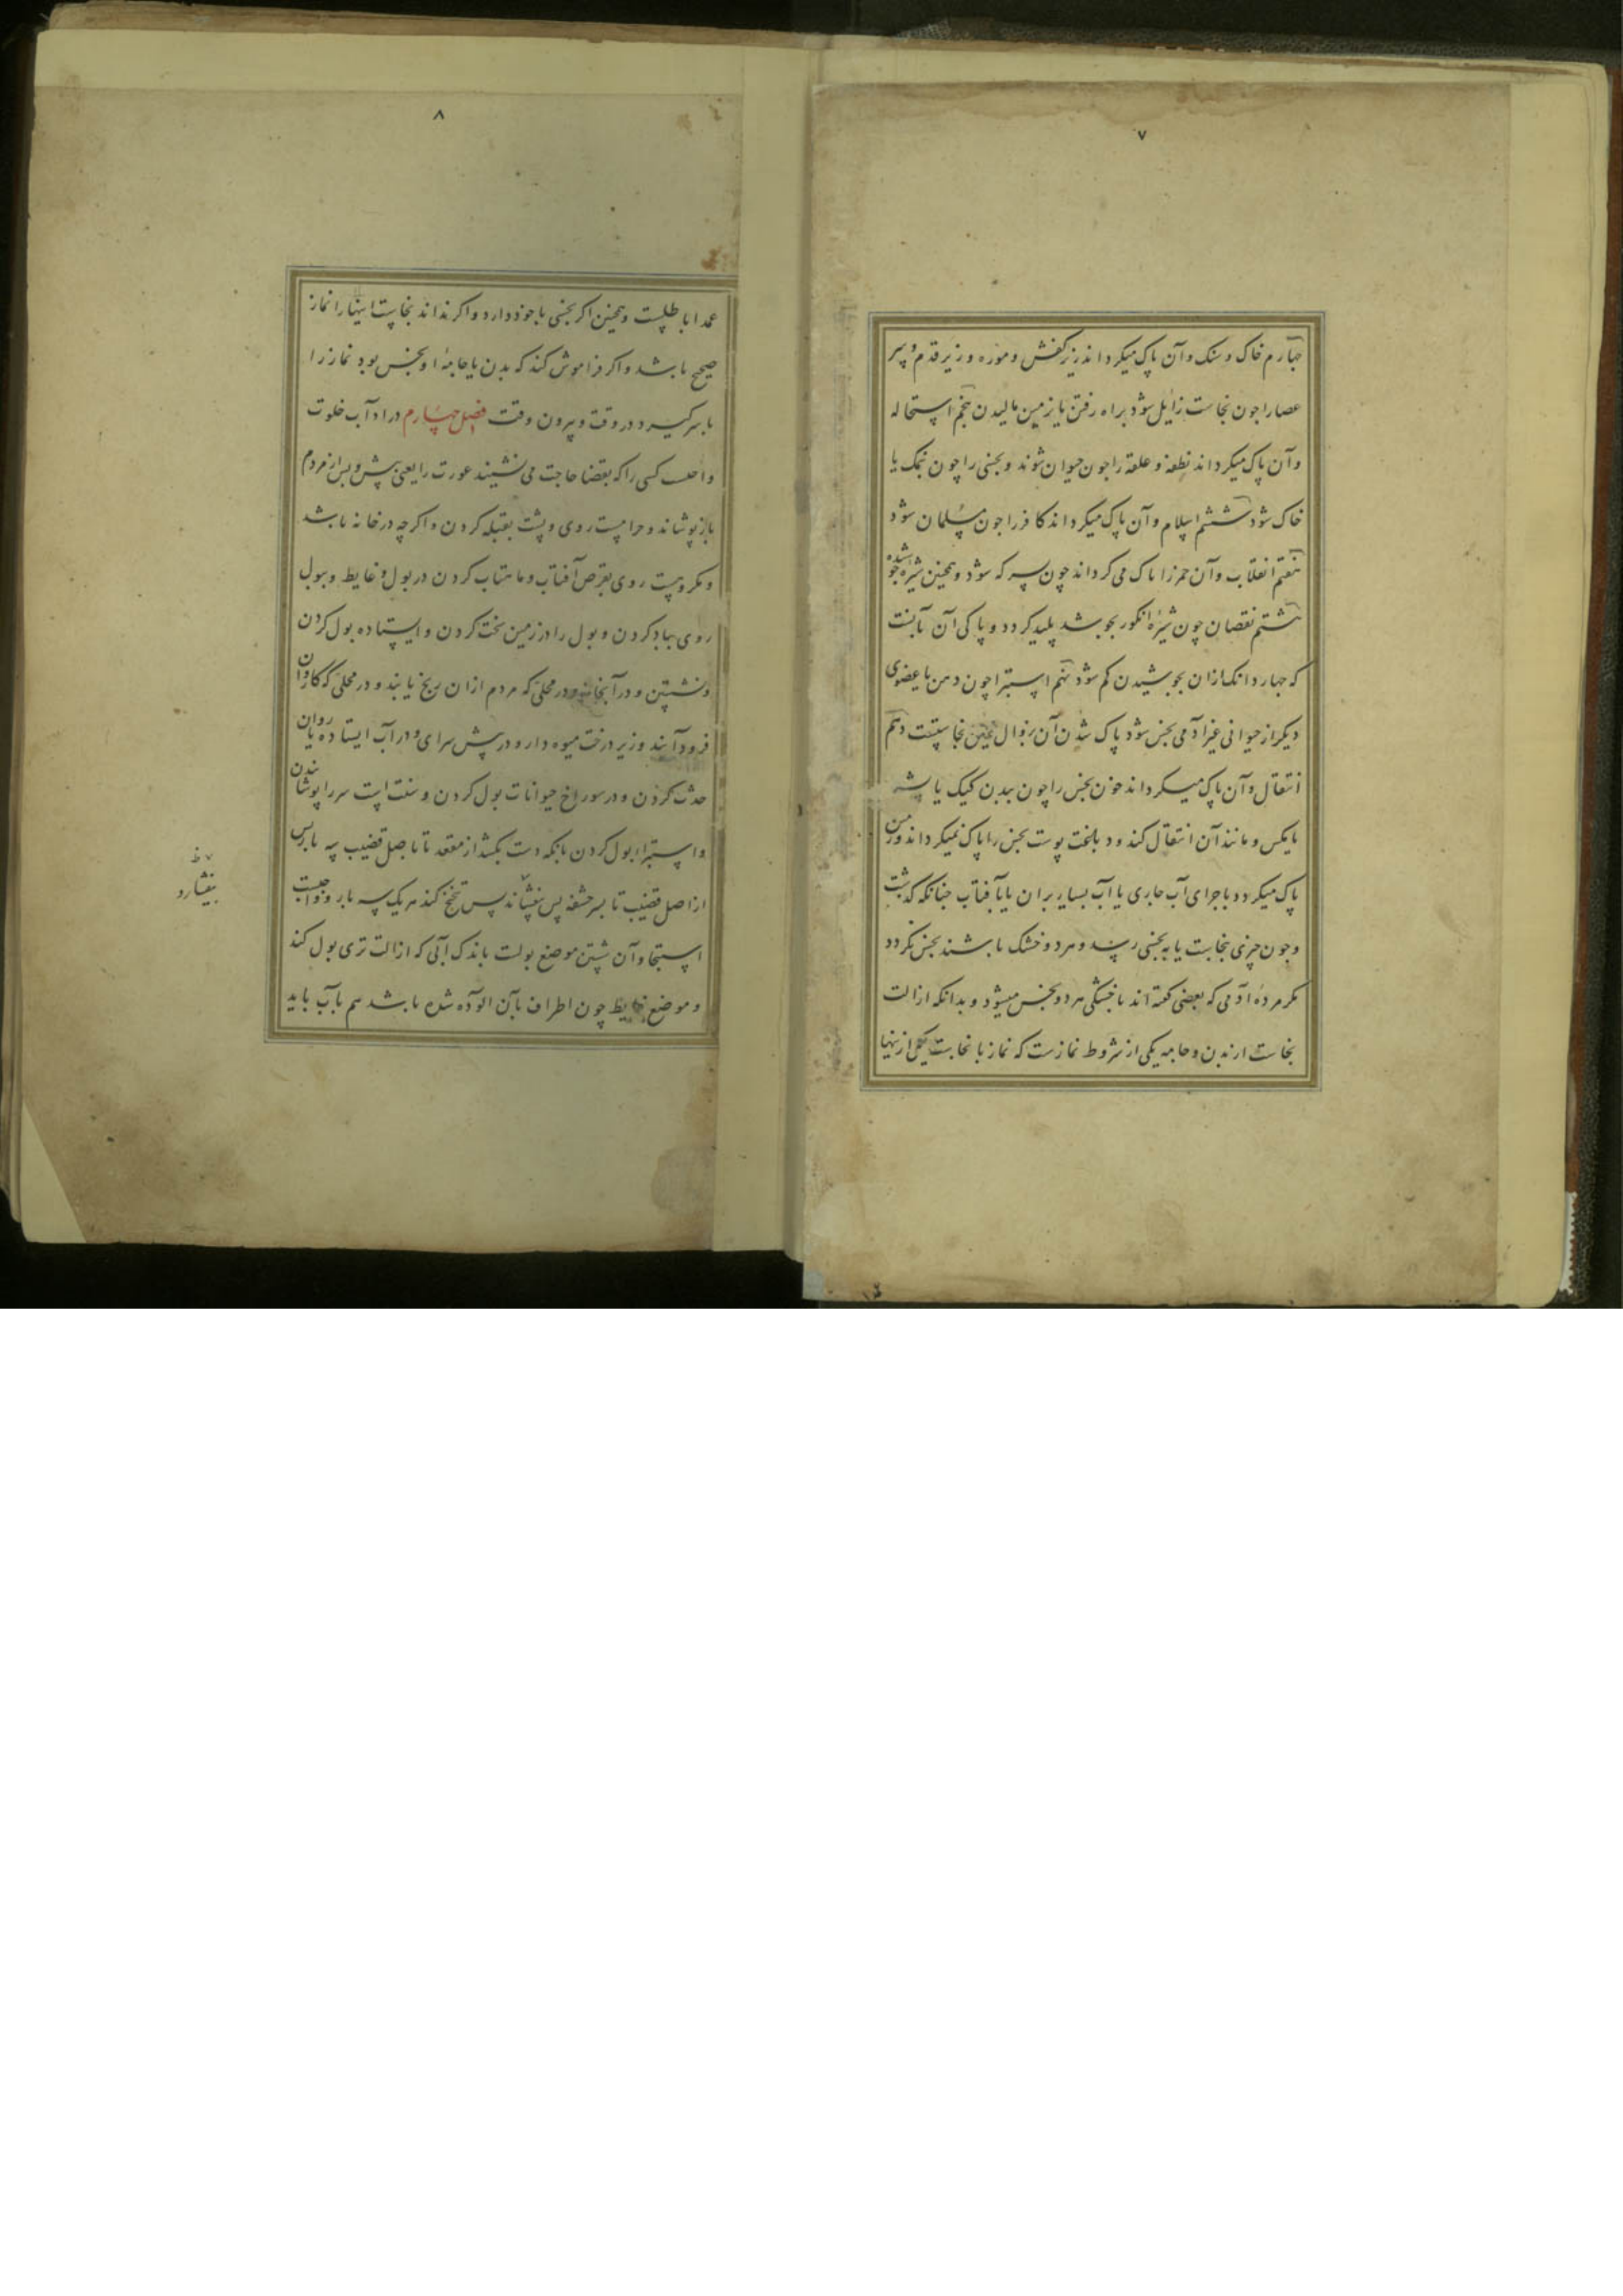 ۷
چهارم خاک و سنک و آن پاک میکرداند زیر کفش و موزه و زیر قدم و سر
عصا را جون نجاست زایل شود براه رفتن یا بزمین مالیدن پنجم استحاله
و آن پاک میکرداند نطفه و علقه را جون حیوان شوند و نجسی را چون نمک یا
خاک شود ششم اسلام و آن پاک میکرداند کافر را جون مسلمان شود
هفتم انقلاب و آن خمر را پاک می کرداند چون سرکه شود و همچنین شیره جو شده
هشتم نقصان چون شیرهٔ انکور بجوشد پلید کردد و پاکی آن بآنست
که جهار دانک ازان بجوشیدن کم شود نهم استبرا چون دهن یا عضوی
دیکر از حیوانی غیر آدمی نجس شود پاک شدن آن بزوال عین نجاستست دهم
انتقال و آن پاک میکرداند خون نجس را چون ببدن کیک یا پشه
یا مکس و مانند آن انتقال کند و دباغت پوست نجس را پاک نمیکرداند و زمین
پاک میکردد باجرای آب جاری یا آب بسیار بران یا بآفتاب جنانکه کذشت
و جون چیزی بنجاست یا به نجسی رسد و هر دو خشک باشند نجس نکردد
مکر مردهٔ آدمی که بعضی کفته اند با خشکی هر دو نجس میشود و بدانکه ازالت
نجاست از بدن و جامه یکی از شروط نمازست که نماز با نجاست یکی ازینها
۸
عمدا باطلست و همچنین اکر نجسی با خود دارد و اکر نداند نجاست اینها را نماز
صحیح باشد و اکر فراموش کند که بدن یا جامهٔ او نجس بود نماز را
باسر کیرد در وقت و بیرون وقت فصل چهارم در اداب خلوت
واجبست کسی را که بقضا حاجت می نشیند عورت را یعنی پیش و پس از مردم
باز پوشاند و حرامست روی و پشت بقبله کردن و اکرچه در خانه باشد
و مکروهست روی بقرص آفتاب و ماهتاب کردن در بول و غایط و ببول
روی بباد کردن و بول را در زمین سخت کردن و ایستاده بول کردن
و نشستن و در آبخانه و در محلی که مردم ازان رنج یابند و در محلی که کاروان
فرود آیند و زیر درخت میوه دار و در پیش سرای و در آب ایستاده یا روان
حدث کردن و در سوراخ حیوانات بول کردن و سنت است سر را پوشاندن
و استبرا بول کردن بانکه دست بکشد از مقعد تا باصل قضیب سه بار پس
از اصل قضیب تا بسر حشفه پس بفشاند پس تنحنح کند هر یک سه بار و واجبست
استنجا و آن شستن موضع بولست باندک آبی که ازالت تری بول کند
و موضع غایط چون اطراف بآن الوده شده باشد هم بآب باید
بفشارد